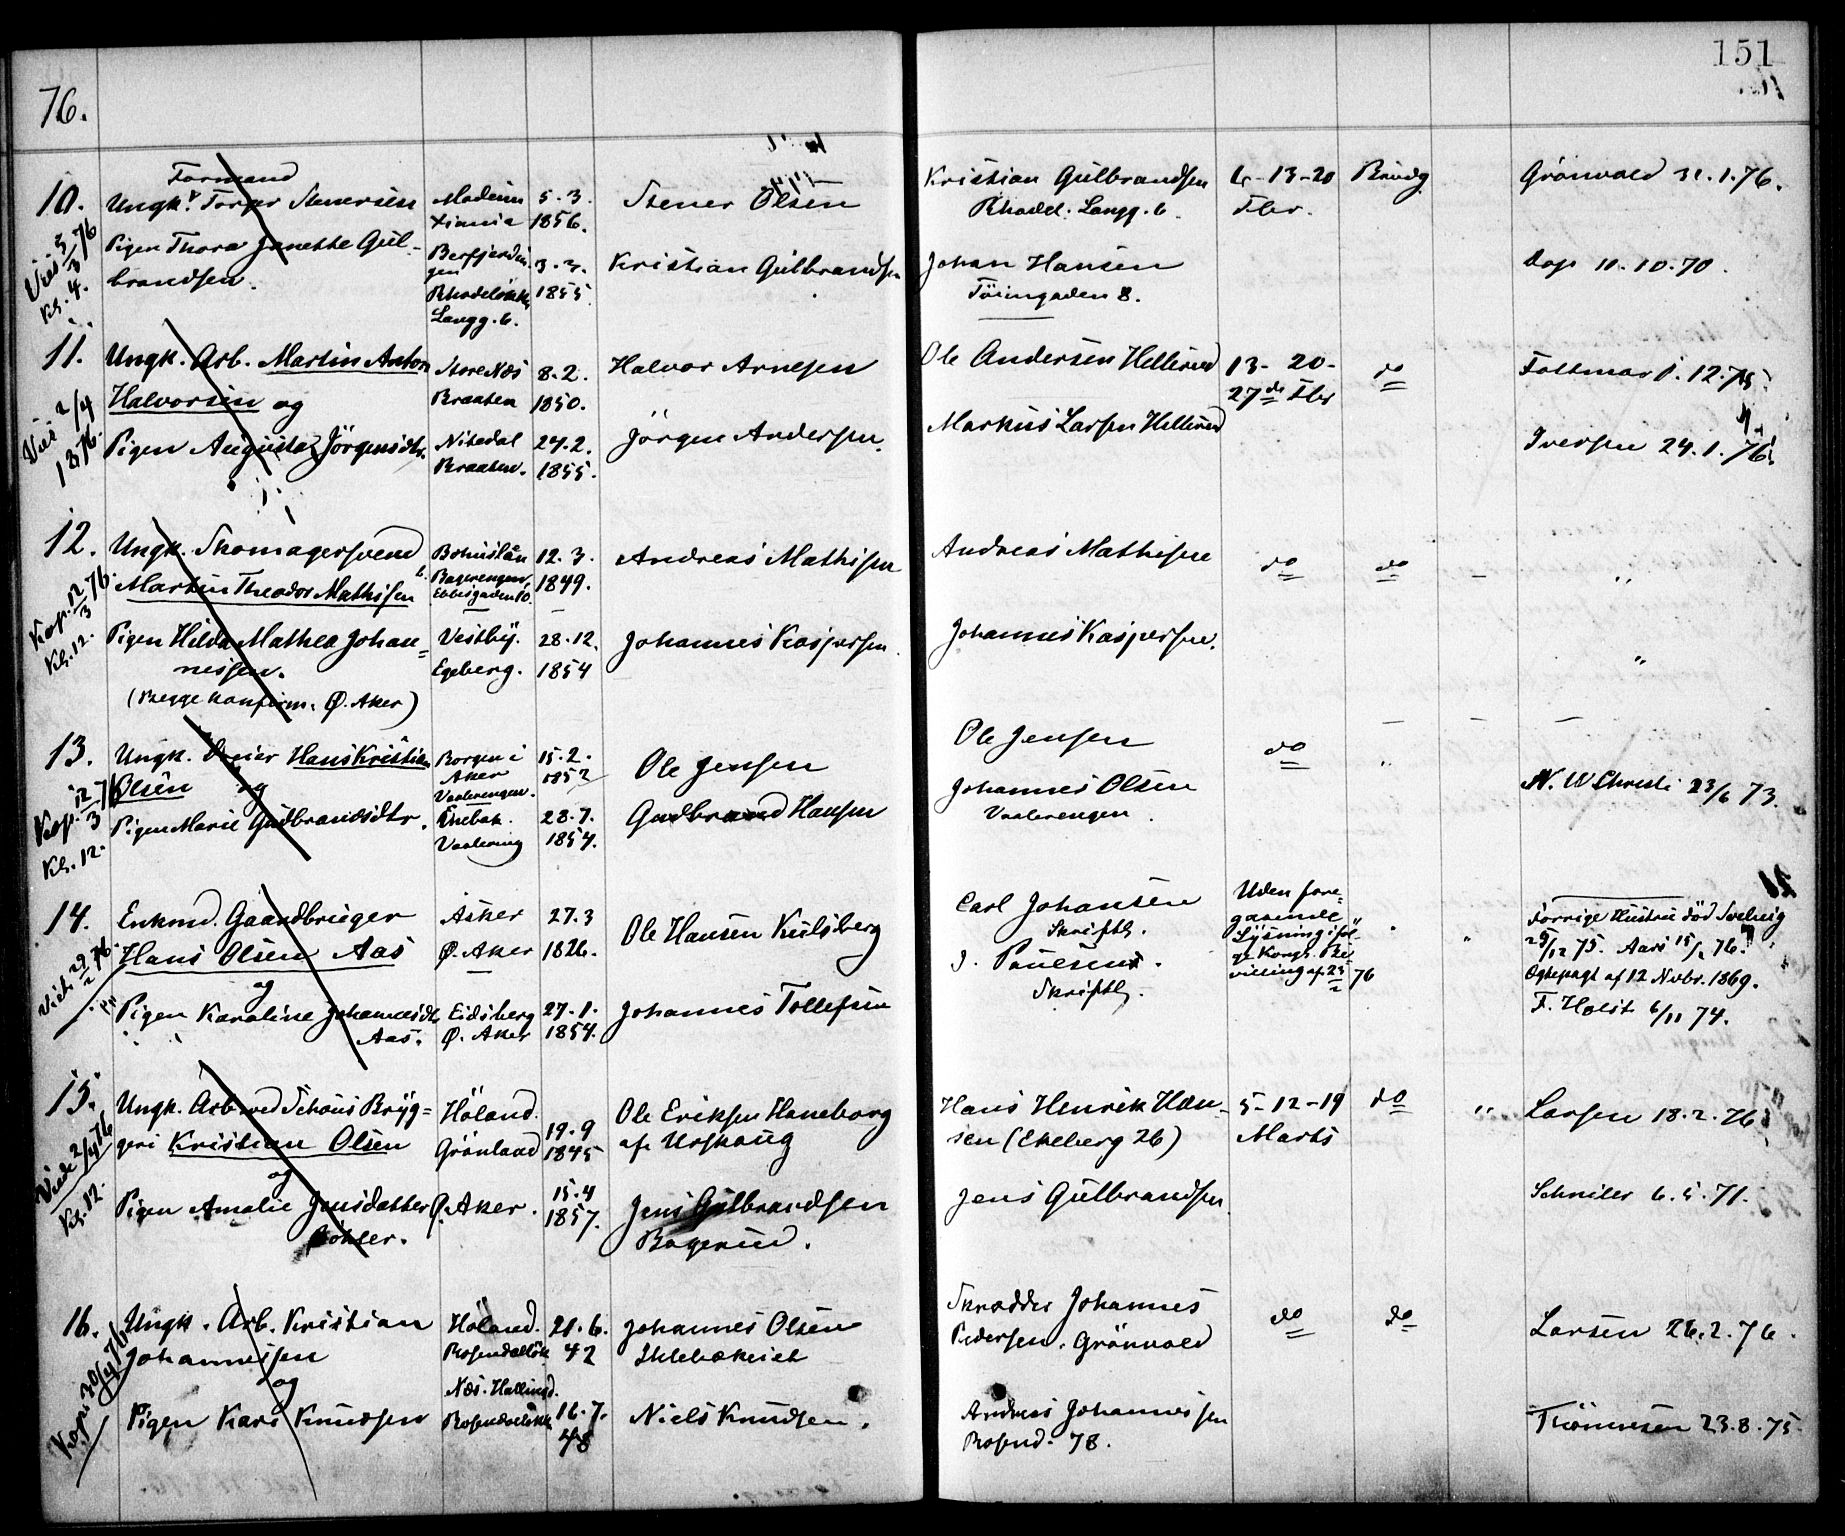 151
76.
10.
Viet 5/3 76
Kl. 4.
Formand
Ungk. Torger Stenersen
Pigen Thora Janette Gul-
brandsen.
Modum
Xiania
5.3.
1856.
gen
Rhodeløkk
Langg. 6.
3.3.
1855
Stener Olsen
Kristian Gulbrandsen
Kristian Gulbrandsen
Rhodel. Langg. 6.
Johan Hansen
Töiengaden 8.
6-13-20
Fbr.
Grönvold 31.1.76.
Dop 11.10.70.
11.
Viet 2/4
1876.
Ungk. Arb. Martin Anton
Halvorsen og
Pigen Augusta Jörgensdtr.
Store Næs
Braaten
8.2.
1850.
Nitedal
Braaten.
24.2.
1855.
Halvor Arnesen
Jörgen Andersen.
Ole Andersen Hellerud
Markus Larsen Hellerud
13-20-
27de Fbr
do
12.75.
Iversen 24.1.76.
12.
Kop. 12/3 76.
Kl. 12.
Ungk. Skomagersvend
Martin Theodor Mathisen
Pigen Hilda Mathea Johan=
nessen.
(Begge konfirm. Ø. Aker)
Bohuslän
12.3.
1849.
Vestby.
Egeberg.
28.12.
1854
Andreas Mathisen
Johannes Kaspersen
Andreas Mathisen
Johannes Kaspersen.
do
do
-
"
"
13.
Kop. 12/3 7
Kl. 12.
Ungk. Hans Kristian
Olsen og
Pigen Marie Gudbrandsdtr.
Borgen i
Aker
Vaalerengen.
15.2.
1852
Enebak.
Vaalering
28.7.
1854.
Ole Jensen
Gudbrand Hansen
Ole Jensen
Johannes Olsen
Vaalerengen.
do
"
N. W Christi 23/6 73.
14.
Viet 29/2 76.
Enkmd. Gaardbruger
Hans Olsen Aas
og
Pigen Karoline Johannesdtr
Aas.
Asker
Ø. Aker
27.3
1826.
Eidsberg
Ø. Aker
27.1.
1854.
Ole Hansen Kulsberg
Johannes Tollefsen
Carl Johansen
Skriftlg.
J. Paulsen.
Skriftlg.
Uden fore-
gaaende
Lysning iföl-
ge Kongl. Be-
villing af 23/2 76
Forrige Hustru död Svelvig
25/12 75.
Egtepagt af 12 Novbr. 1869.
F. Holst 6/11 74.
15.
Viede 2/4 76
Kl. 12.
Ungk. Arb. ved Schous Bryg=
geri Kristian Olsen
og
Pigen Amalie Jensdatter
Höland.
Grönland
19.9
1845
Ø. Aker.
15.4
1857.
Ole Eriksen Haneborg
af Urskoug
Jens Gulbrandsen
Bagerud.
Hans Henrik Han-
sen (Ekeberg 26)
Jens Gulbrandsen.
5-12-19
Marts
do
"
Larsen 18.2.76
Schniler 6.5.71.
16.
Kop. 30/4 76
Ungk. Arb. Kristian
Johannessen
og
Pigen Kari Knudsen
Höland.
Rosendallök
21.6.
42
Næs. Hallingd.
Rosendallökk
16.7.
48
Johannes Olsen
Niels Knudsen.
Skrædder Johannes
Pedersen. Grönvold
Andreas Johannessen
Rosend. 78.
do
do
Larsen 26.2.76.
Thönnesen 23.8.75.